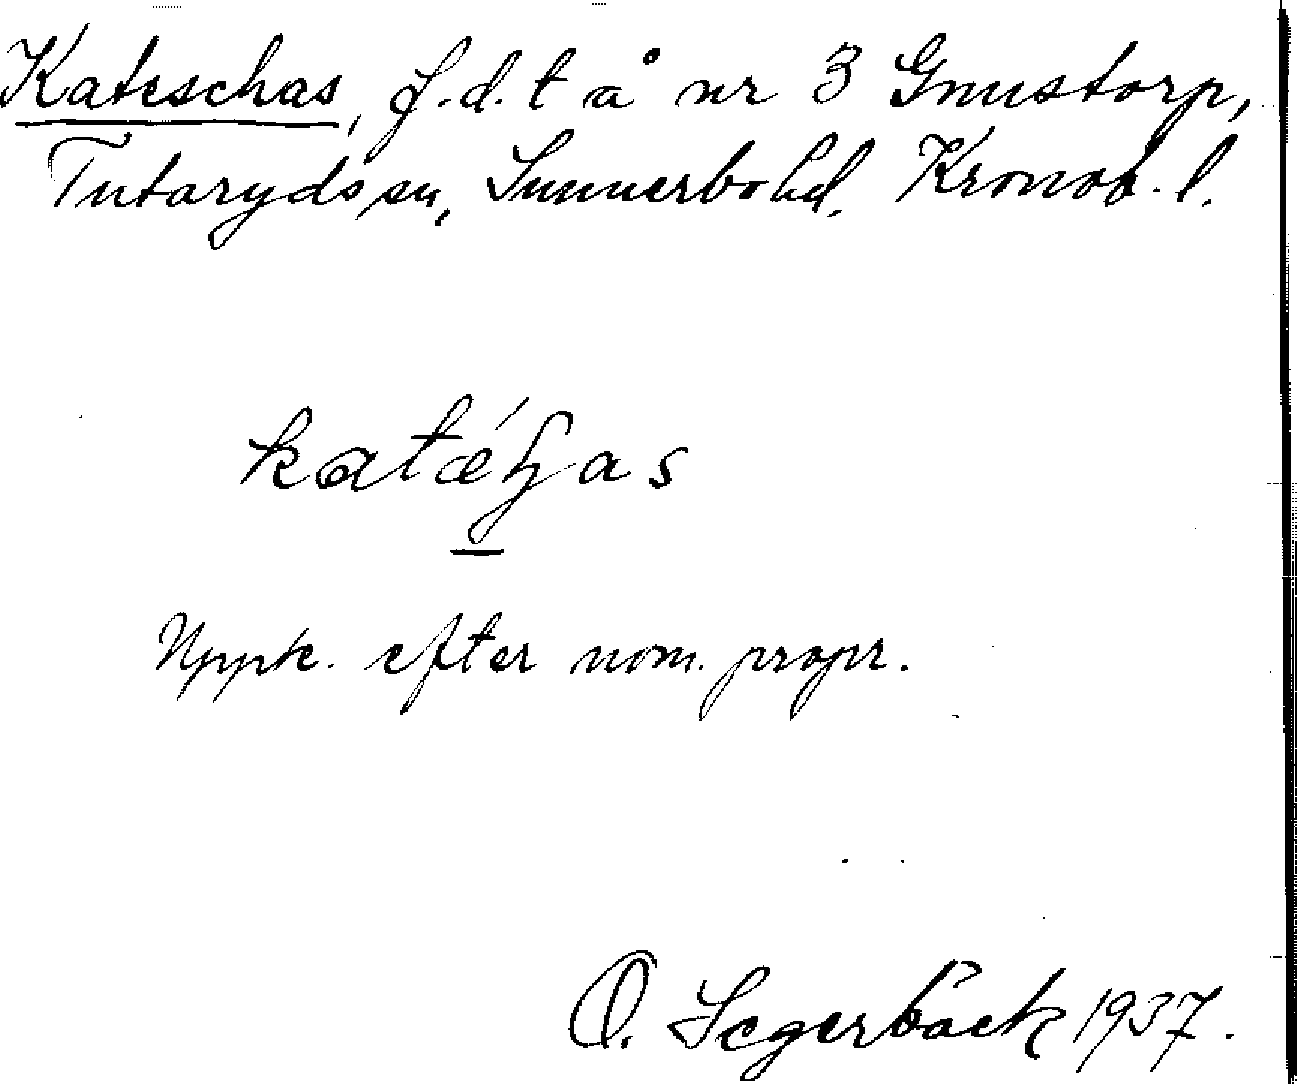 Kateschas, f.d. t å nr 3 Gnustorp,
Tutaryds sn, Sunnerbo hd. Kronob. l.
katǽɧas
Uppk. efter nom. propr.
O. Segerbäck 1937.